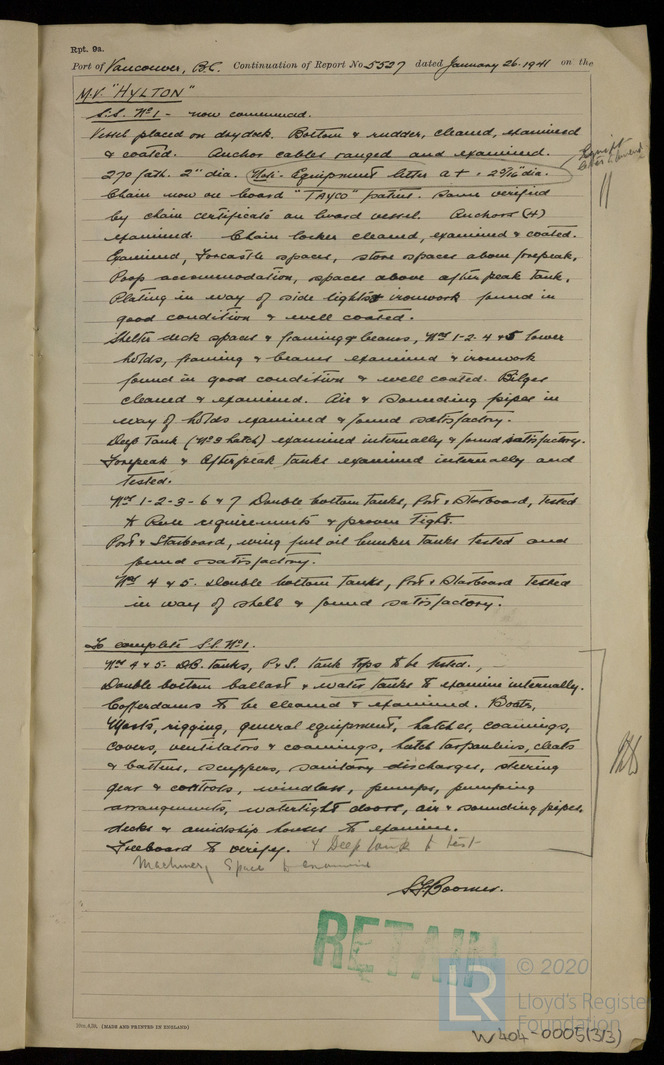 Rpt. 9a.
Port of Vancouver, B.C. Continuation of Report No 5527 dated January 26. 1941 on the
M.V. "HYLTON"
S.S. No 1 - now commenced.
Vessel placed on drydock. Bottom & rudder, cleaned, examined
& coated. Anchor cables ranged and examined.
270 fath. 2" dia. Note:- Equipment letter a+ - 2 5/16" dia.
Equipt letter
Chain now on board "TAYCO" patent. Same verified
by chain certificate on board vessel. Anchors (4)
examined. Chain locker cleaned, examined & coated.
Examined, Forcastle spaces, store spaces above forepeak,
Poop accommodation, spaces above after peak tank.
Plating in way of side lights & ironwork found in
good condition & well coated.
Shelter deck spaces & framing & beams, Nos 1-2-4 & 5 lower
holds, framing & beams examined & ironwork
found in good condition & well coated. Bilges
cleaned & examined. Air & sounding pipes in
way of holds examined & found satisfactory.
Deep Tank (No 3 hatch) examined internally & found satisfactory.
Forepeak & Afterpeak tanks examined internally and
tested.
Nos 1-2-3-6 & 7 Double bottom tanks, Port & Starboard, tested
to Rule requirements & proven tight.
Port & Starboard, wing fuel oil bunker tanks tested and
found satisfactory.
Nos 4 & 5. Double bottom tanks, Port & Starboard tested
in way of shell & found satisfactory.
To complete S.S. No 1.
Nos 4 & 5. D.B. tanks, P. & S. tank tops to be tested.
Double bottom ballast & water tanks to examine internally.
Cofferdams to be cleaned & examined. Boats,
Masts, rigging, general equipment, hatches, coamings,
covers, ventilators & coamings, hatch tarpaulins, cleats
& battens, scuppers, sanitary discharges, steering
gear & controls, windlass, pumps, pumping
arrangements, watertight doors, air & sounding pipes,
decks & amidship houses to examine.
Freeboard to verify. & Deep tank to test
Machinery Space to examine
S.G. Boomer.
RETAIN
© 2020
LR
Lloyd's Register
Foundation
(MADE AND PRINTED IN ENGLAND)
W404-0005(3/3)